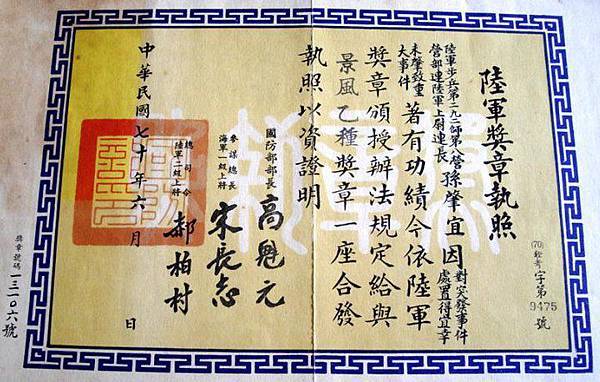 陸軍獎章執照
(70)
字第
9475
號
陸軍步兵第二九二師第八營
營部連陸軍上尉連長
孫肇宜因
對突發事件
處置得宜幸
未肇致重
大事件
著有功績今依陸軍
獎章頒授辦法規定給與
景風乙種獎章一座合發
執照以資證明
國防部部長
高魁元
參謀總長
海軍一級上將
宋長志
總司令
陸軍二級上將
郝柏村
中華民國七十年六月
日
獎章號碼
一三一〇六號